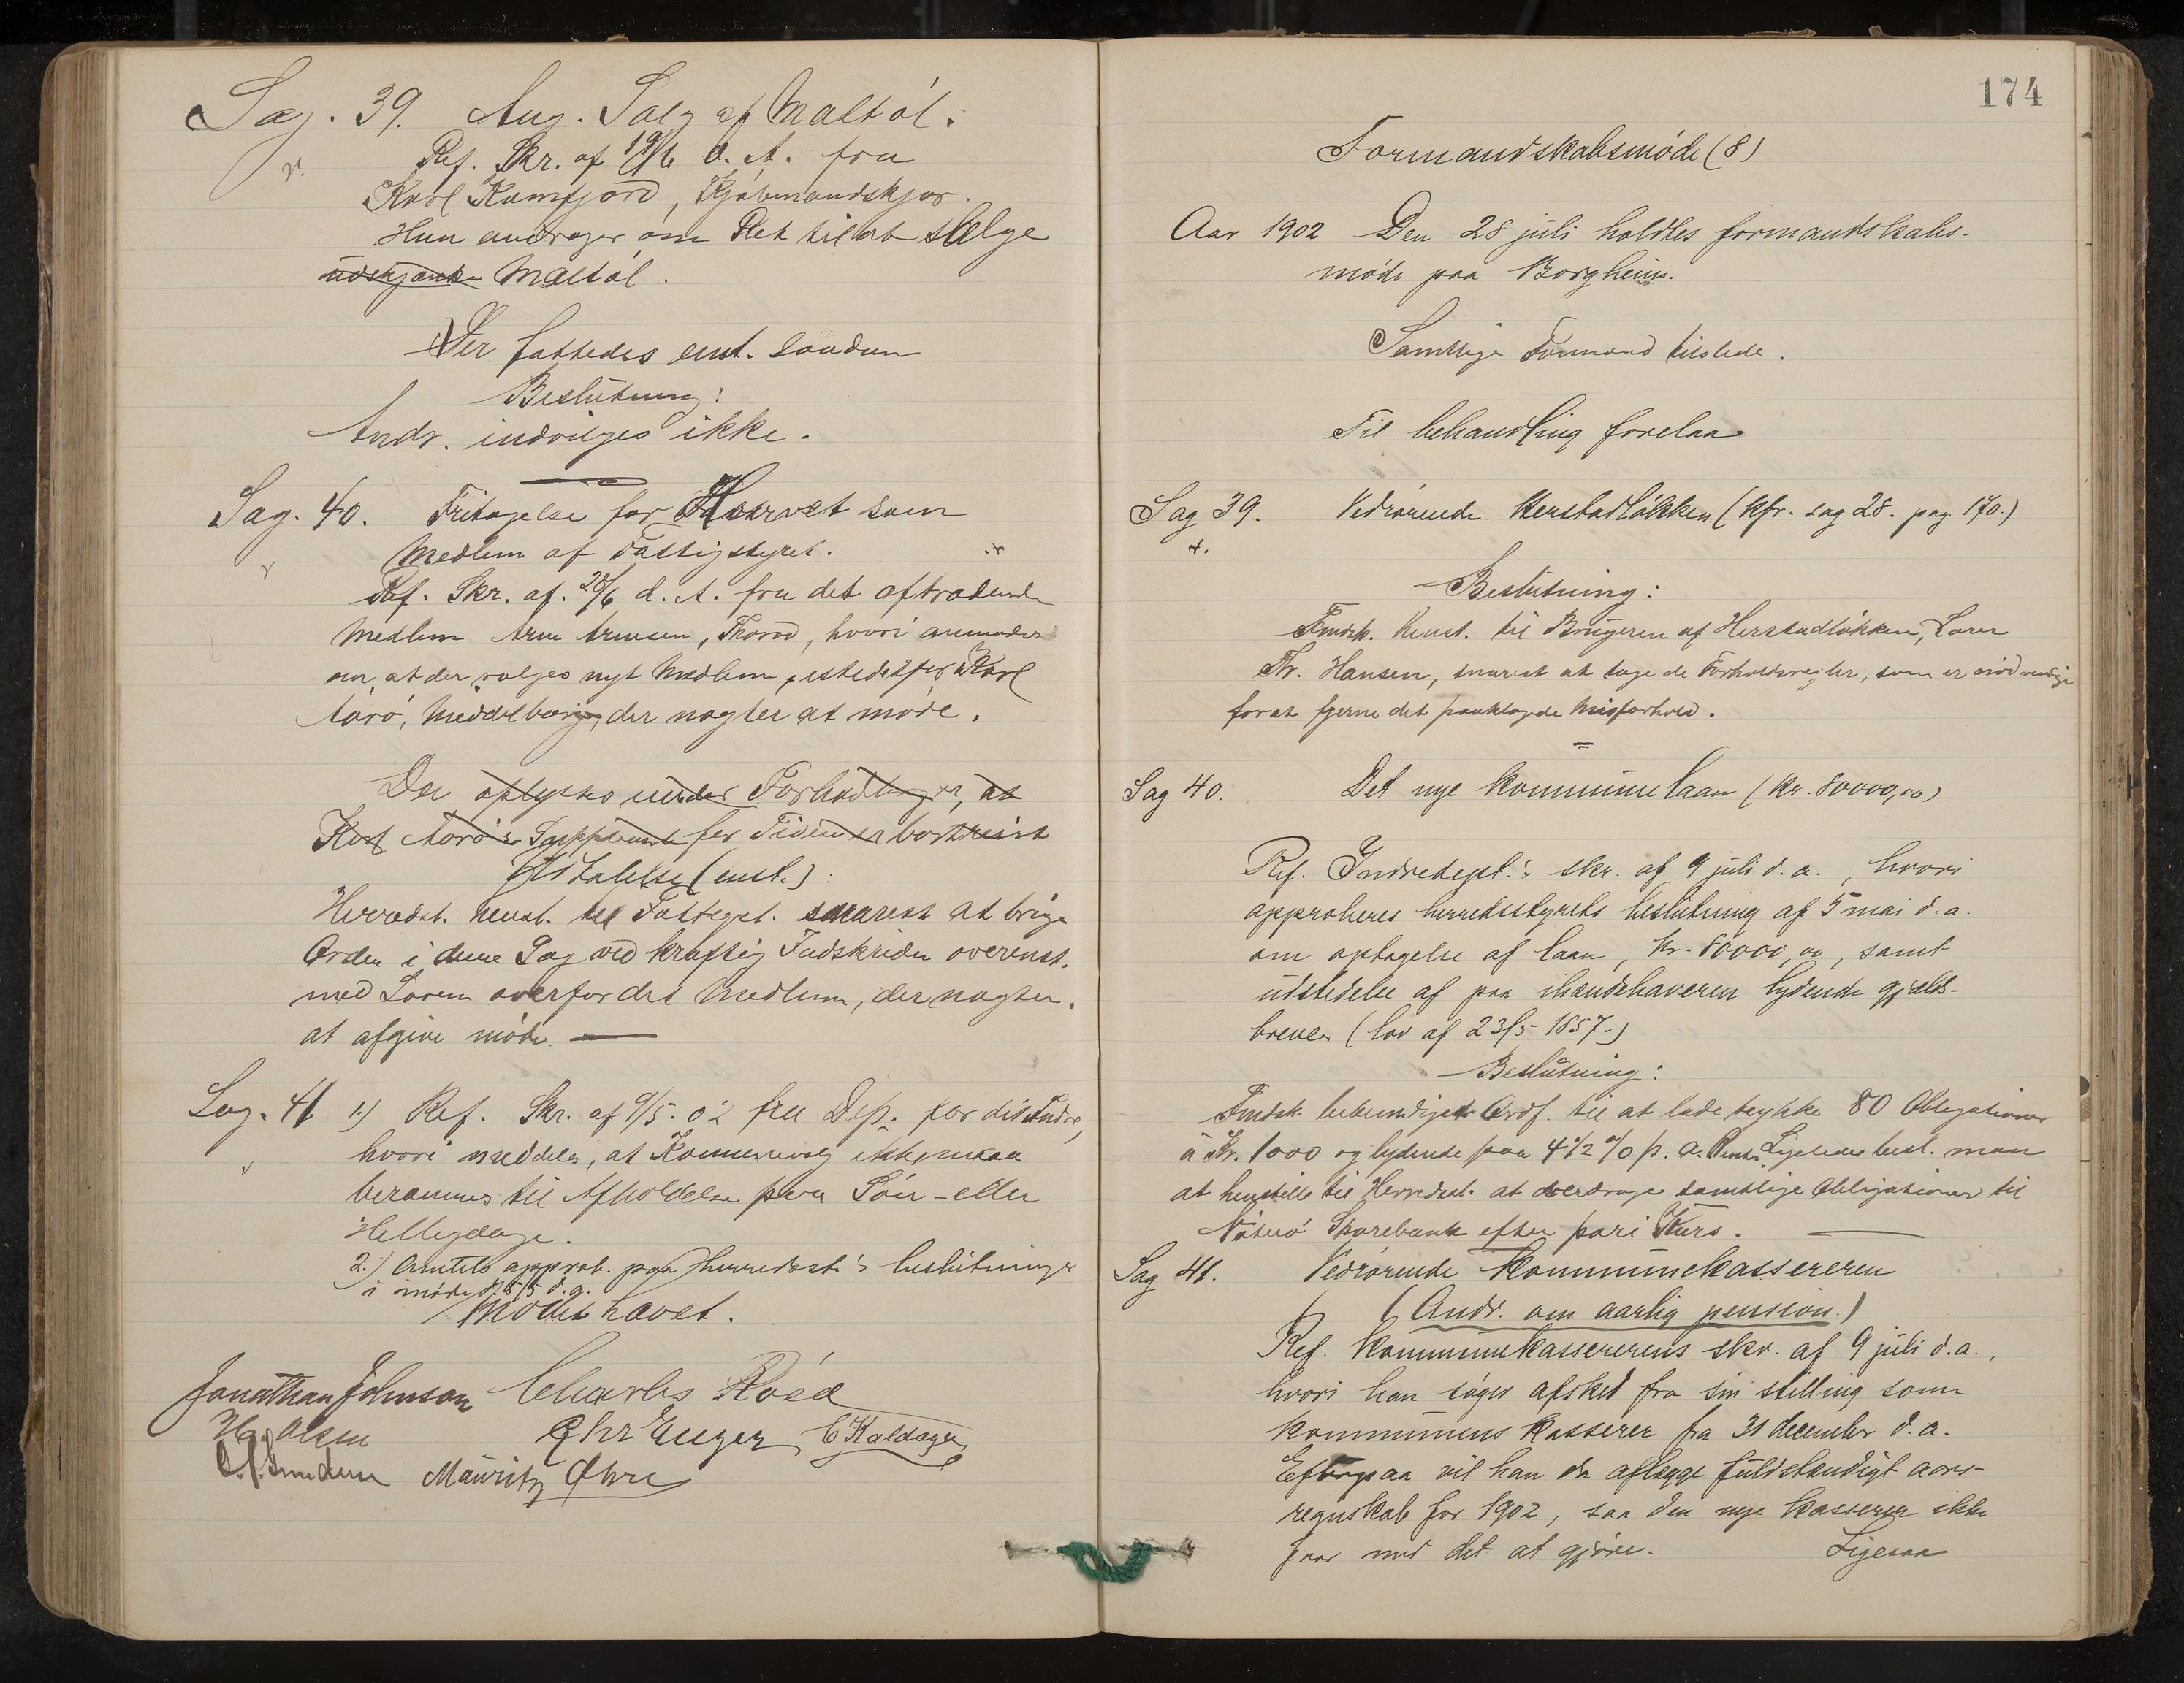 Sag. 39. Ang. Salg af Maltøl.
Ref. Skr. af 19/6 d. A. fra
Karl Kamfjord, Kjøbmandskjær.
Han andrager om Ret til at sælge
udskjænke Maltøl.
Der fattedes enst. saadan
Beslutning:
Andr. indvilges ikke.
Sag. 40. Fritagelse for Hvervet som
Medlem af Fattigstyret.
Ref. Skr. af 28/6 d. A. fra det aftrædende
Medlem Arne Arnesen, Thorød, hvori anmodes
om, at der vælges nyt Medlem, istedetfor Karl
Aarø, Meddelberg, der nægter at møde.
Der oplystes under Forhandlingen, at
Karl Aarø's Suppleant for Tiden er bortreist
Udtalelse (enst.):
Herredst. henst. til Fattigst. snarest at bringe
Orden i denne Sag ved kraftig Indskriden overenst.
med Loven overfor det Medlem, der nægter
at afgive møde.
Sag. 41 1.) Ref. Skr. af 9/5. 02 fra Dep. for det Indre,
hvori meddeles, at Kommunevalg ikke maa
berammes til Afholdelse paa Søn- eller
Helligdage.
2.) Amtets approb. paa herredsst.'s beslutninger
i møde d. 5/5 d. a.
Mødet hævet.
Jonathan Johnson Charles Røed
H. Olsen Chr Enger C Kaldager
Mauritz Øhre
174
Formandskabsmøde (8)
Aar 1902 Den 28 juli holdtes formandskabs-
møde paa Borgheim.
Samtlige Formænd tilstede.
Til behandling forelaa
Sag 39. Vedrørende Herstadløkken (kfr. sag 28. pag. 170.)
Beslutning:
Fmdsk. henst. til Brugeren af Herstadløkken, Lærer
Fr. Hansen, snarest at tage de Forholdsregler, som er nødvendige
forat fjerne det paaklagede Misforhold.
Sag 40. Det nye kommunelaan (kr. 80000,00)
Ref. Indredept.'s skr. af 9 juli d. a., hvori
approberes herredsstyrets beslutning af 5 mai d. a.
om optagelse af laan, kr. 80000,00, samt
udstedelse af paa ihændehaveren lydende gjælds-
breve. (lov af 23/5 1857.)
Beslutning:
Fmdsk bemyndiget Ordf. til at lade trykke 80 Obligationer
à Kr. 1000 og lydende paa 4 1/2 % p. a. Rente. Ligeledes besl. man
at henstille til Herredsst. at overdrage samtlige Obligationer til
Nøtterø Sparebank efter pari Kurs.
Sag 41. Vedrørende Kommunekassereren
(Andr. om aarlig pension.)
Ref. kommunekassererens skr. af 9 juli d. a.,
hvori han søger afsked fra sin stilling som
kommunens kasserer fra 31 december d. a.
Efterpaa vil han da aflægge fuldstændigt aars-
regnskab for 1902, saa den nye kasserer ikke
faar med det at gjøre. Ligesaa